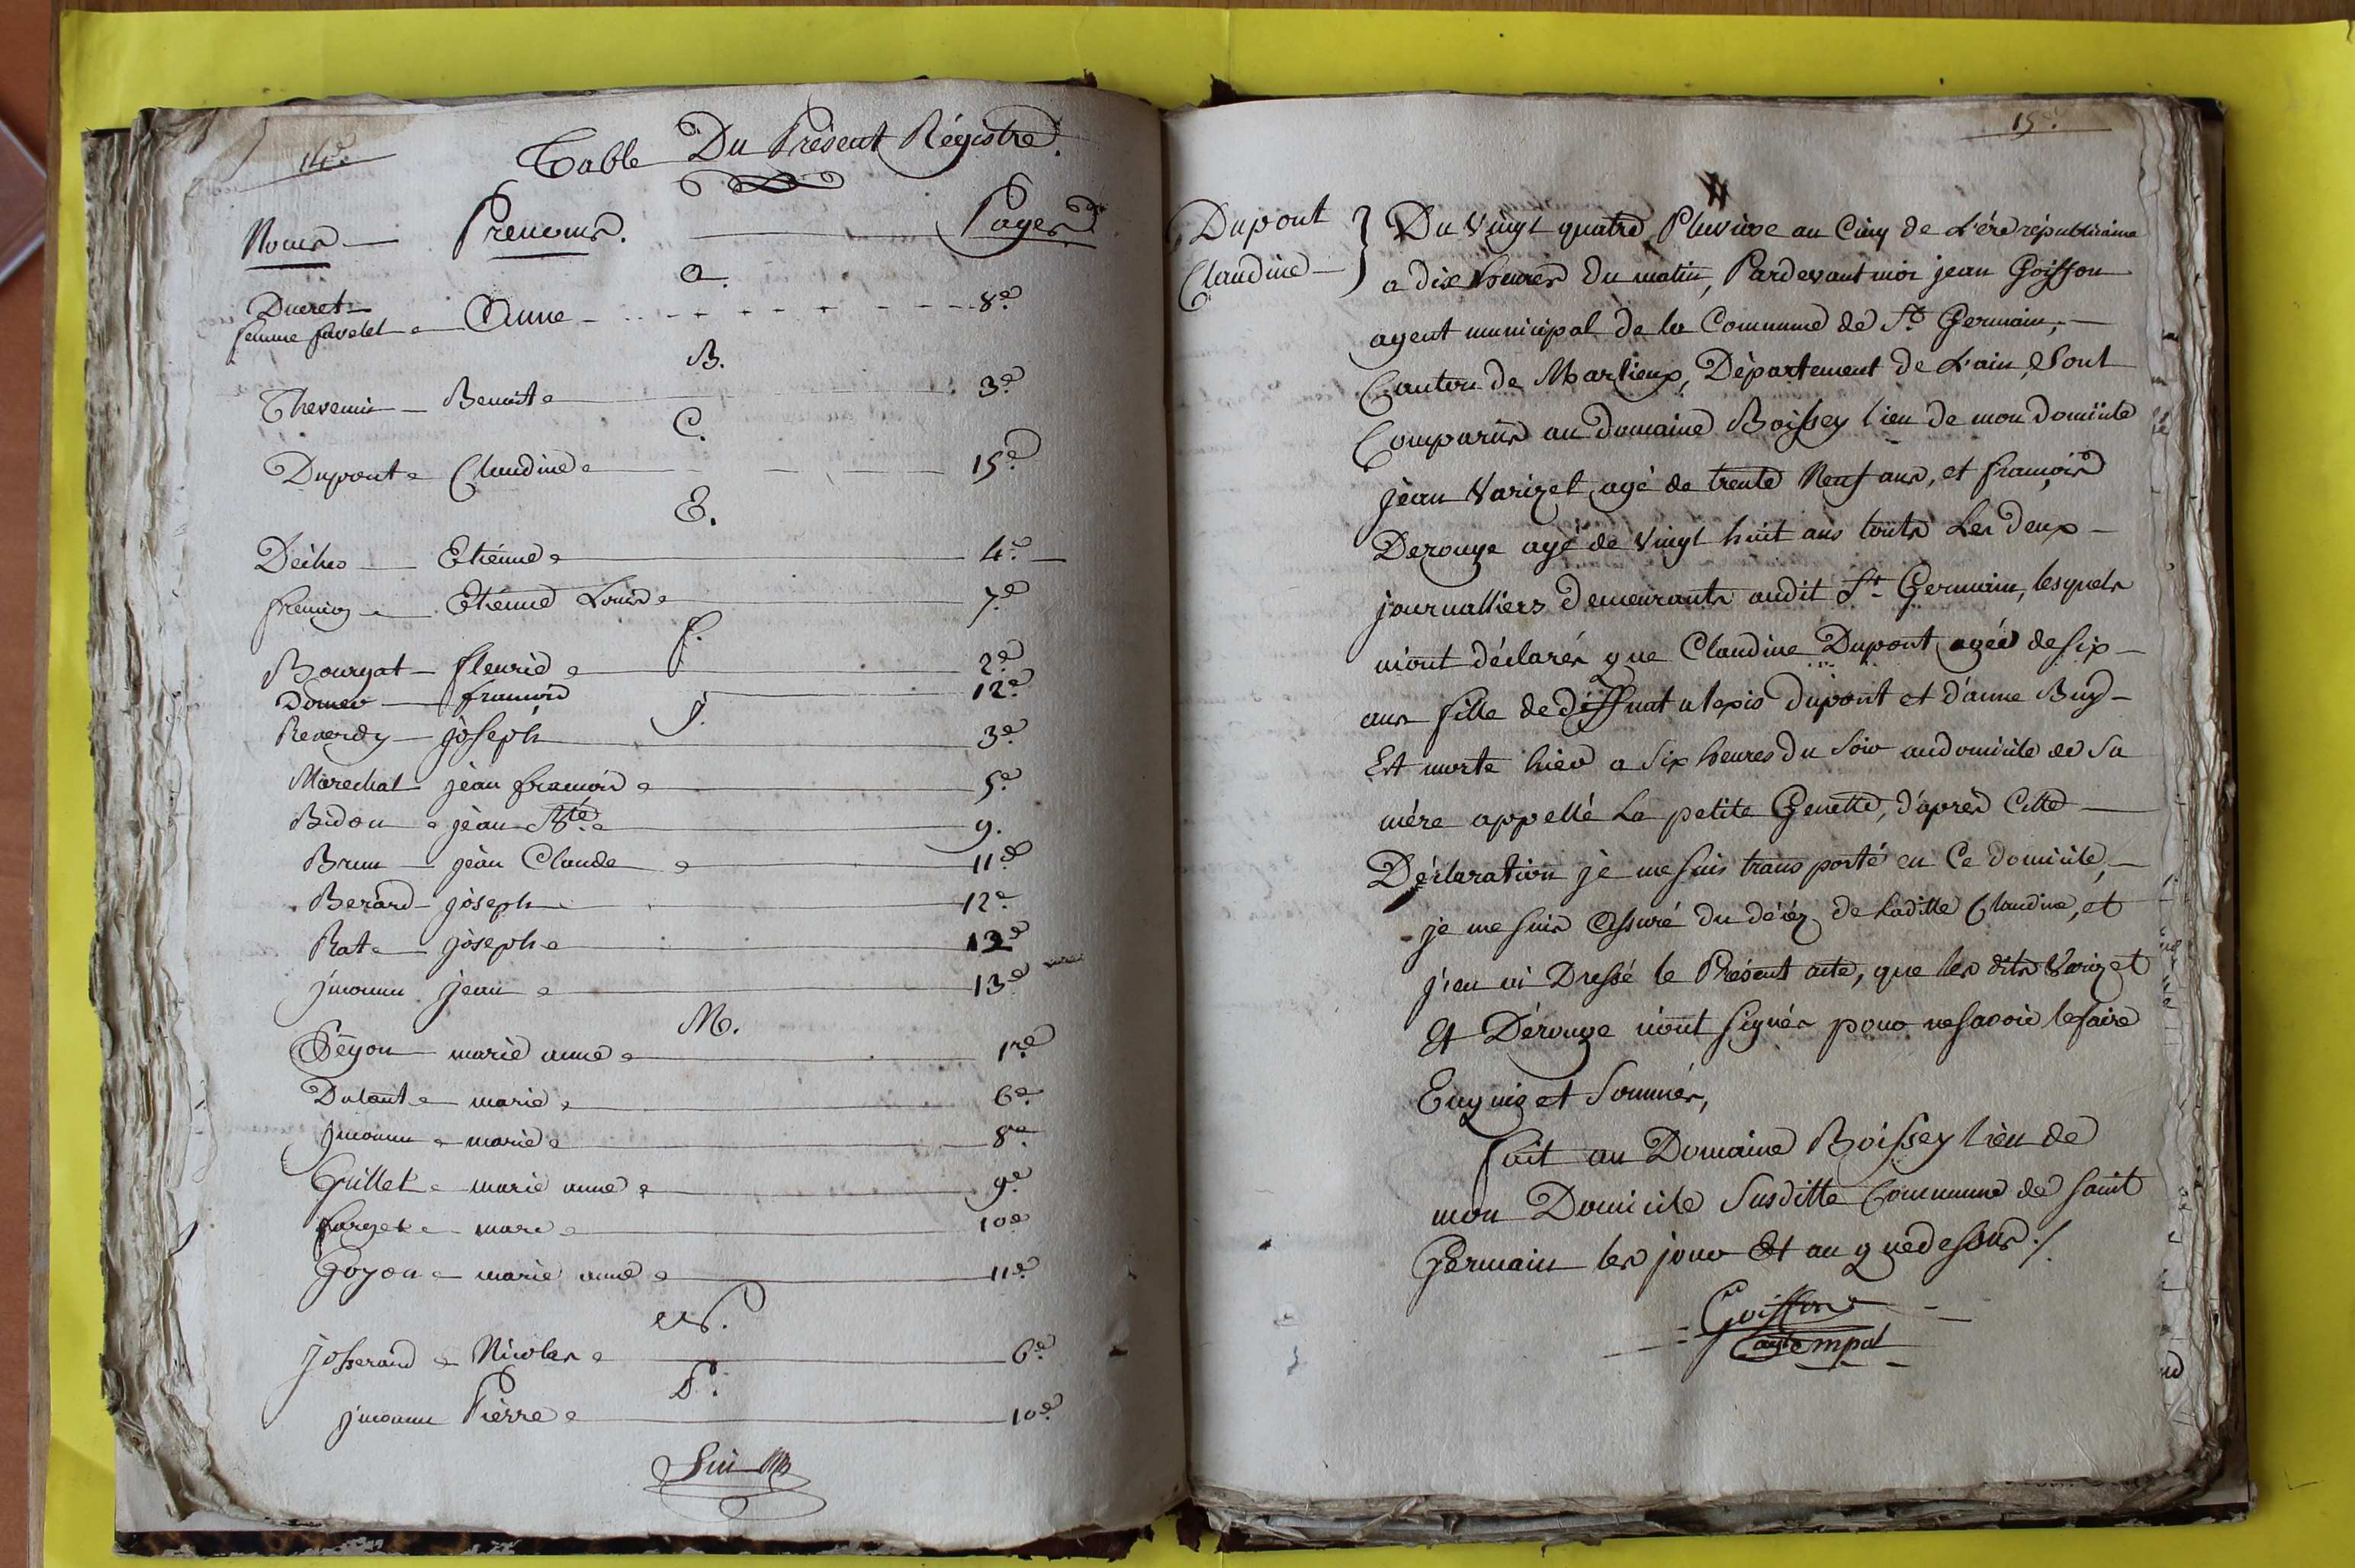 14e.
Table Du Présent Régistre.
Noms — Prenoms. — Pages
a.
Ducret
femme favelet Anne - 8e
B.
Thevenin — Benoit 3e
C.
Dupont Claudine 15e
E.
Etiénne 4e
Etiénne Louis 7e
f.
Bourgat — fleurie 2e
françois 12e
j.
Reverdy — jòseph 3e
Marechal jèan françois 5e
Bidon jèan Bte 9.
Brun — jèan Claude 11e
Berard — jòseph 12e
Rat jòseph 13e
jmonnu jean 13e
M.
Géyon — marie anne 1re
Dutant marie 6e
jmonnu marie 8e
Grillet marie anne 9e
farget marie 10e
Goyon marie anne 11e
N.
josserand Nicolas 6e
P.
jmonnu Pièrre 10e
Fin
15e.
Dupont
Claudine
Du Vingt quatre Pluviose an Cinq de L'ére républicaine
a dix heures du matin, Pardevant moi jean Goiffon
agent municipal de la Commune de St. Germain, —
Canton de Marlieux, Département de L'ain, Sont
Comparûs au domaine Boissey lieu de mon domicile
jèan Varizet agé de trente Neuf ans, et françois
Derouge agé de Vingt huit ans touts Les deux —
journalliers demeurants audit St. Germain, lesquels
m'ont déclarés que Claudine Dupont agée de six —
ans fille de diffunt alexis dupont et d'anne Buy —
Est morte hier a Six heures du Soir au domicile de Sa
mére appellé La petite Genette, d'après Cette —
Déclaration jè me suis transporté en Ce domicile, —
je me suis assuré du décéz de Laditte Claudine, et
j'en ai Dressé le Présent acte, que les dits Varizet
Et Dérouge n'ont signés pour ne savoir le faire
Enquis et Sommés,
fait au Domaine Boissey lieu de
mon Domicile Susditte Commune de saint
Germain les jour Et an que dessus ./.
Goiffon
agt. mpal